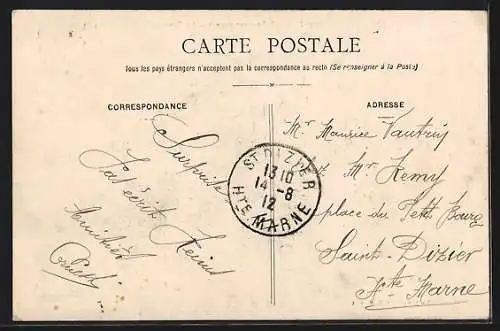 CARTE POSTALE
Tous les pays étrangers n'acceptent pas la correspondance au recto (Se renseigner à la Poste)
CORRESPONDANCE
Surprise
J'ai écrit
Amitiés
ADRESSE
Mr Maurice Vautrin
Mr Remy
place du Petit Bourg
Saint-Dizier
Hte Marne
ST DIZIER
13 10
14 - 8
12
HTE MARNE